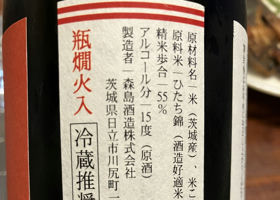 原材料名―米(茨城産)、米こ
原料米―ひたち錦(酒造好適米
精米歩合―55%
アルコール分―15度(原酒)
製造者―森島酒造株式会社
茨城県日立市川尻町一
瓶燗火入
冷蔵推奨